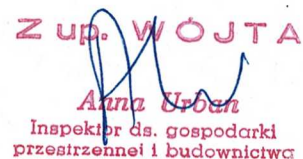 Z up. WÓJTA
Anna Urban
Inspektor ds. gospodarki
przestrzennej i budownictwa